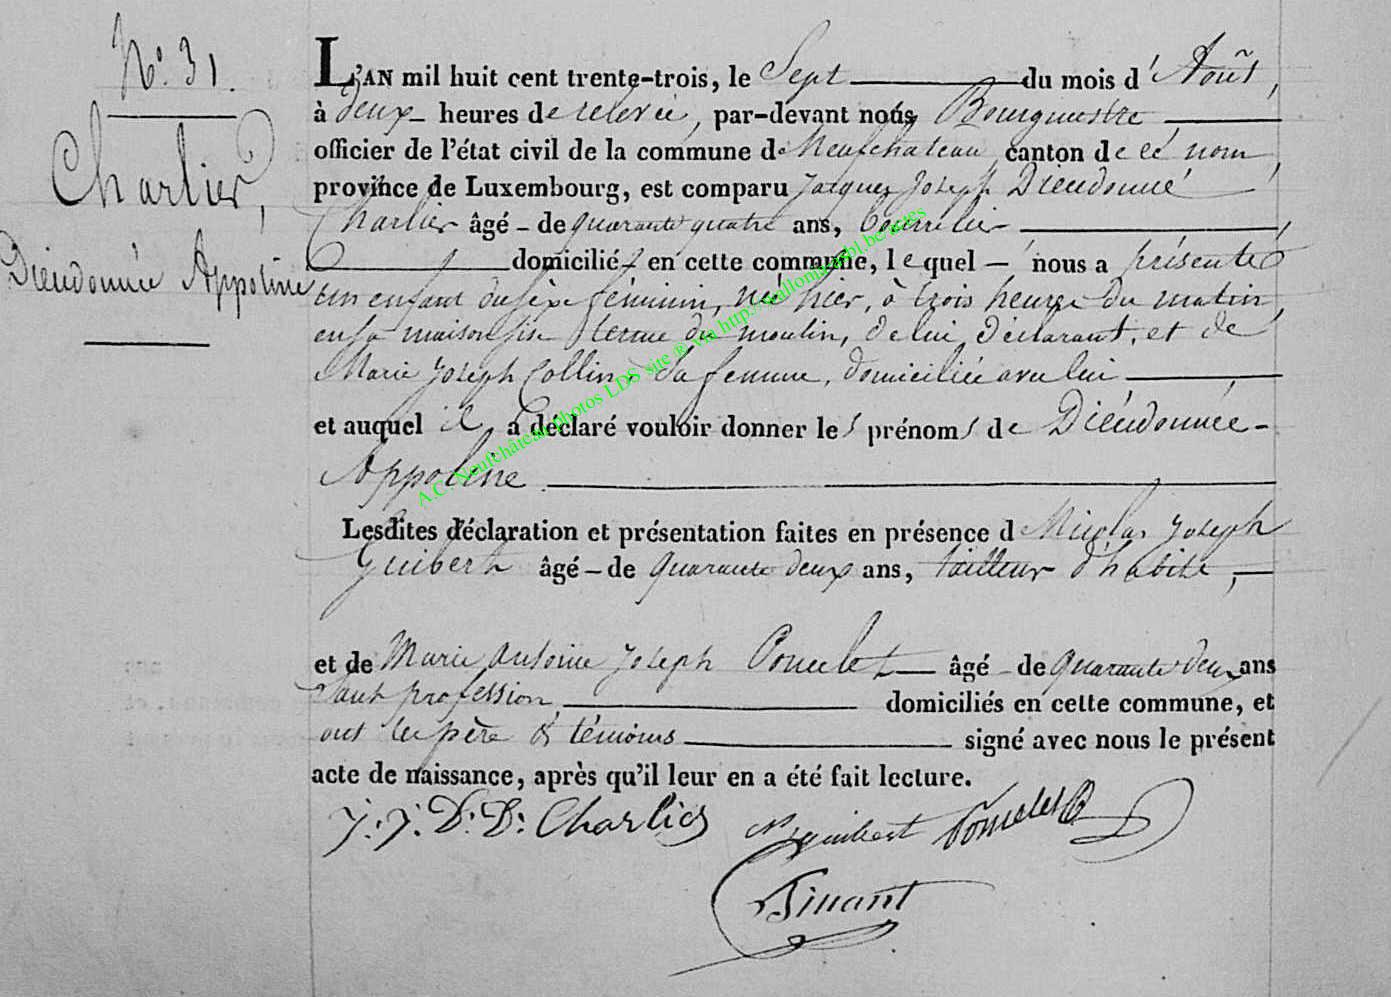 N° 31.
Charlier,
Dieudonnée Appoline
L'AN mil huit cent trente-trois, le Sept du mois d'Août,
à deux heures de relevée, par-devant nous Bourgmestre,
officier de l'état civil de la commune de Neufchateau, canton de ce nom,
province de Luxembourg, est comparu Jacques Joseph Dieudonné
Charlier âgé de quarante quatre ans, bourrelier,
domicilié en cette commune, lequel nous a présenté
un enfant du sexe féminin, né hier, à trois heures du matin
en sa maison sise du moulin, de lui déclarant, et de
Marie Joseph Collin, sa femme, domiciliée avec lui,
et auquel il a déclaré vouloir donner les prénoms de Dieudonnée
Appoline
Lesdites déclaration et présentation faites en présence d Nicolas Joseph
Guibert âgé de quarante deux ans, tailleur d'habits,
et de Marie Antoine Joseph Poncelet âgé de quarante deux ans
sans profession, domiciliés en cette commune, et
ont les père & témoins signé avec nous le présent
acte de naissance, après qu'il leur en a été fait lecture.
J: J: D: D: Charlier N J guibert Poncelet
Tinant
A.C. Neufchâteau photos LDS site ® via http://wallonia asbl.be/actes